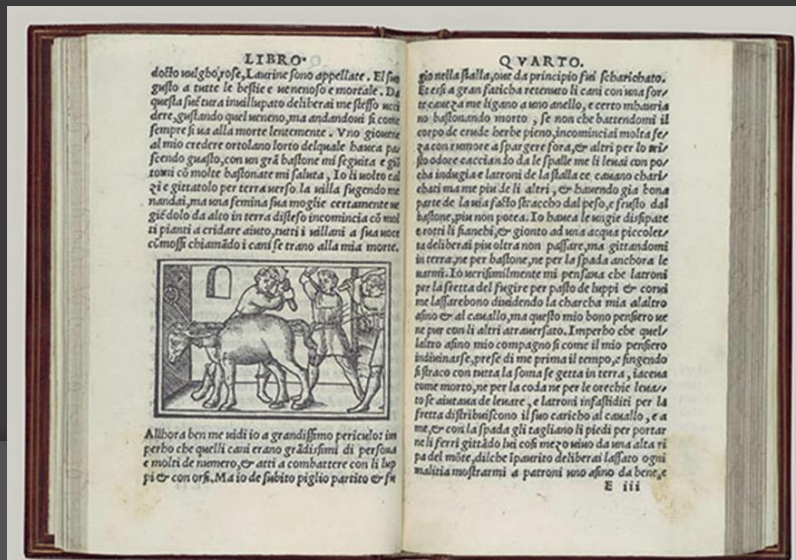 LIBRO
docto uulgho, rose, Laurine sono appellate. El suo
gusto a tutte le bestie e uenenoso e mortale. Da
questa suētura inuillupato deliberai me stesso ucci
dere, gustando quel ueneno, ma andandoui si come
sempre si ua alla morte lentemente. Vno giouene
al mio credere ortolano lorto delquale hauea pa
scendo guasto, con un grā bastone mi seguita e giō
tomi cō molte bastonate mi saluta, Io li uolto cal
zi e gittatolo per terra uerso la uilla fugendo me
nandai, ma una femina sua moglie certamente ue
giēdolo da alto in terra disteso incomincia cō mol
ti pianti a cridare aiuto, tutti i uillani a sua uoce
cōmossi chiamādo i cani se trano alla mia morte.
Allhora ben me uidi io a grandissimo periculo: im
perho che quelli cani erano grādissimi di persona
e molti de numero, & atti a combattere con li lup
pi & con orsi. Ma io de subito piglio partito & fu
QVARTO.
gio nella stalla, oue da principio fui scharichato.
Et essi a gran faticha retenuto li cani con una for
te caueza me ligano a uno anello, e certo mhaueria
no bastonando morto, se non che battendomi il
corpo de crude herbe pieno, incominciai molta fe
za con rumore a spargere fora, & altri per lo tri
sto odore cacciando da le spalle me li leuai con po
cha indugia e latroni de la stalla ce cauano chari
chati ma me piu de li altri, & hauendo gia bona
parte de la uia facto straccho dal peso, e frusto dal
bastone, piu non potea. Io hauea le ungie dissipate
e rotti li fianchi, & gionto ad una acqua piccolet
ta deliberai piu oltra non passare, ma gittandomi
in terra, ne per bastone, ne per la spada anchora le
uarmi. Io uerisimilmente mi pensaua che latroni
per la fretta del fugire per pasto de luppi & corui
me lassarebono diuidendo la charcha mia alaltro
asino & al cauallo, ma questo mio bono pensiero ue
ne pur con li altri atrauersato. Imperho che quel
laltro asino mio compagno si come il mio pensiero
indiuinasse, prese di me prima il tempo, e fingendo
si straco con tutta la soma se getta in terra, iaceua
come morto, ne per la coda ne per le orechie leua
to se aiutaua de leuare, e latroni infastiditi per la
fretta distribuiscono il suo caricho al cauallo, e a
me, & con la spada gli tagliano li piedi per portar
ne li ferri gittādo lui cosi mezo uiuo da una alta ri
pa del mōte, dilche ipaurito deliberai lassato ogni
malitia mostrarmi a patroni uno asino da bene, e
E iii